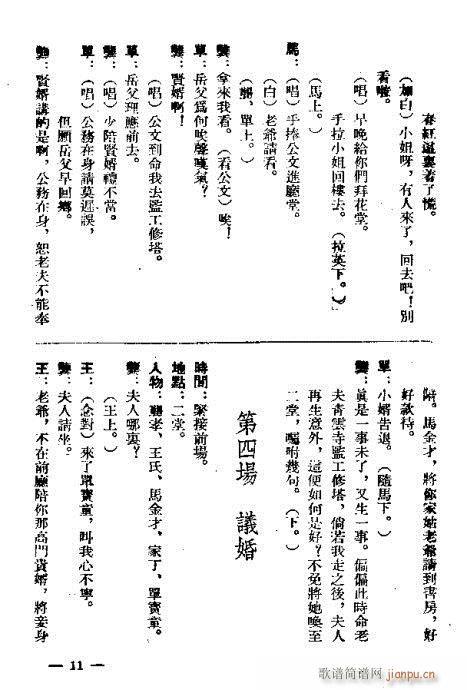 春紅這裏着了慌。
（加白）小姐呀，有人來了，回去吧！別
看啦。
（唱）早晚給你們拜花堂。
手拉小姐回樓去。（拉英下。）
（馬上。）
馬：（唱）手捧公文進廳堂。
（白）老爺請看。
（龔、單上。）
龔：拿來我看。（看公文）唉！
單：岳父爲何唉聲嘆氣？
龔：賢婿啊！
（唱）公文到命我去監工修塔。
單：岳父理應前去。
龔：（唱）少陪賢婿禮不當。
單：（唱）公務在身請莫遲誤，
但願岳父早回鄉。
龔：賢婿講的是啊，公務在身，恕老夫不能奉
陪。馬金才，將你家姑老爺請到書房，好
好款待。
單：小婿告退。（隨馬下。）
龔：眞是一事未了，又生一事。偏偏此時命老
夫青雲寺監工修塔，倘若我走之後，夫人
再生意外，這便如何是好？不免將她喚至
二堂，囑咐幾句。（下。）
第四場　議婚
時間：緊接前場。
地點：二堂。
人物：龔孝、王氏、馬金才，家丁，單寳童。
龔：夫人哪裏？
（王上。）
王：（念對）來了單寳童，叫我心不寧。
龔：夫人請坐。
王：老爺，不在前廳陪你那高門貴婿，將妾身
— 11 —
歌谱简谱网
jianpu.cn